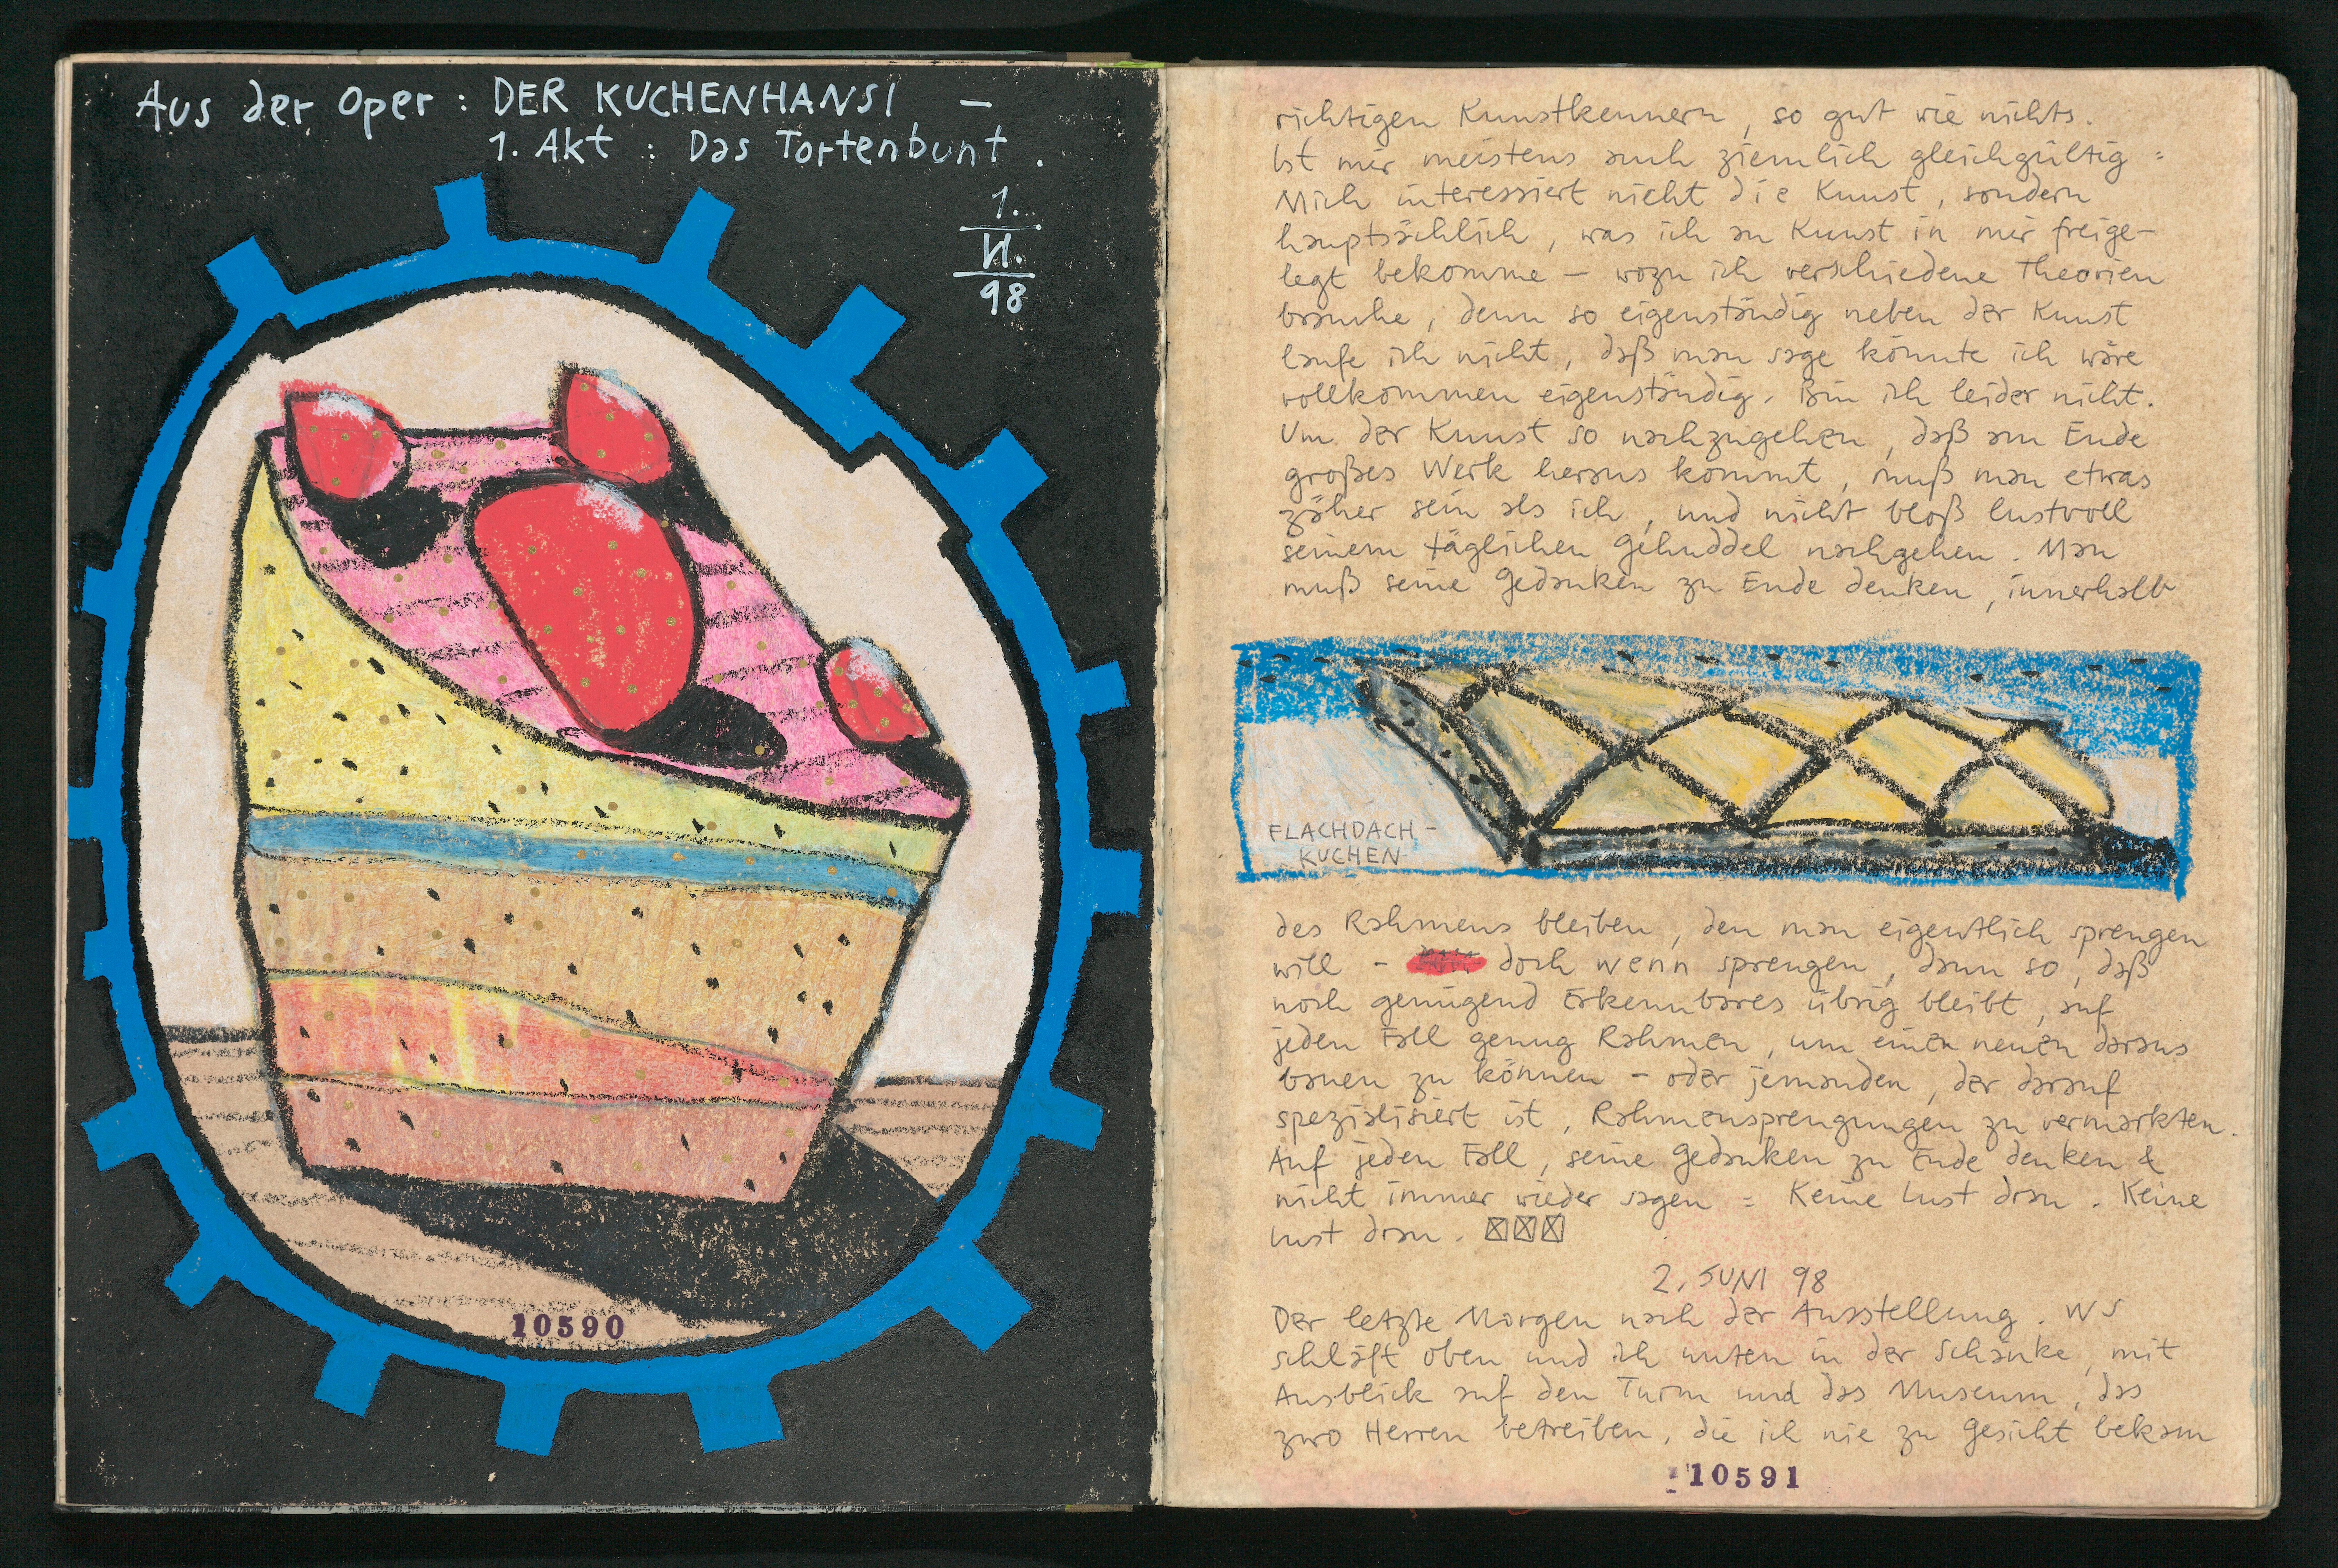 Aus der Oper : DER KUCHENHANSI –
1. Akt : Das Tortenbunt .
1.
VI.
98
10590
richtigen Kunstkennern, so gut wie nichts.
Ist mir meistens auch ziemlich gleichgültig :
Mich interessiert nicht die Kunst, sondern
hauptsächlich, was ich an Kunst in mir freige-
legt bekomme – wozu ich verschiedene Theorien
brauche, denn so eigenständig neben der Kunst
laufe ich nicht, daß man sage könnte ich wäre
vollkommen eigenständig. Bin ich leider nicht.
Um der Kunst so nachzugehen, daß am Ende
großes Werk heraus kommt, muß man etwas
zäher sein als ich, und nicht bloß lustvoll
seinem täglichen Gehuddel nachgehen. Man
muß seine Gedanken zu Ende denken, innerhalb
FLACHDACH-
KUCHEN
des Rahmens bleiben, den man eigentlich sprengen
will – doch wenn sprengen, dann so, daß
noch genügend Erkennbares übrig bleibt, auf
jeden Fall genug Rahmen, um einen neuen daraus
bauen zu können – oder jemanden, der darauf
spezialisiert ist, Rahmensprengungen zu vermarkten.
Auf jeden Fall, seine Gedanken zu Ende denken &
nicht immer wieder sagen : Keine Lust dran. Keine
Lust dran.
2. JUNI 98
Der letzte Morgen nach der Ausstellung. WS
schläft oben und ich unten in der Schänke, mit
Ausblick auf den Turm und das Museum, das
zwo Herren betreiben, die ich nie zu Gesicht bekam
10591